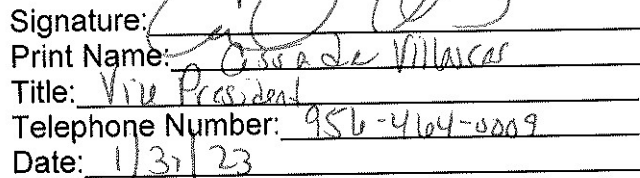 Signature:
Print Name: Villascas
Title: Vice President
Telephone Number: 956-464-0009
Date: 1/31/23